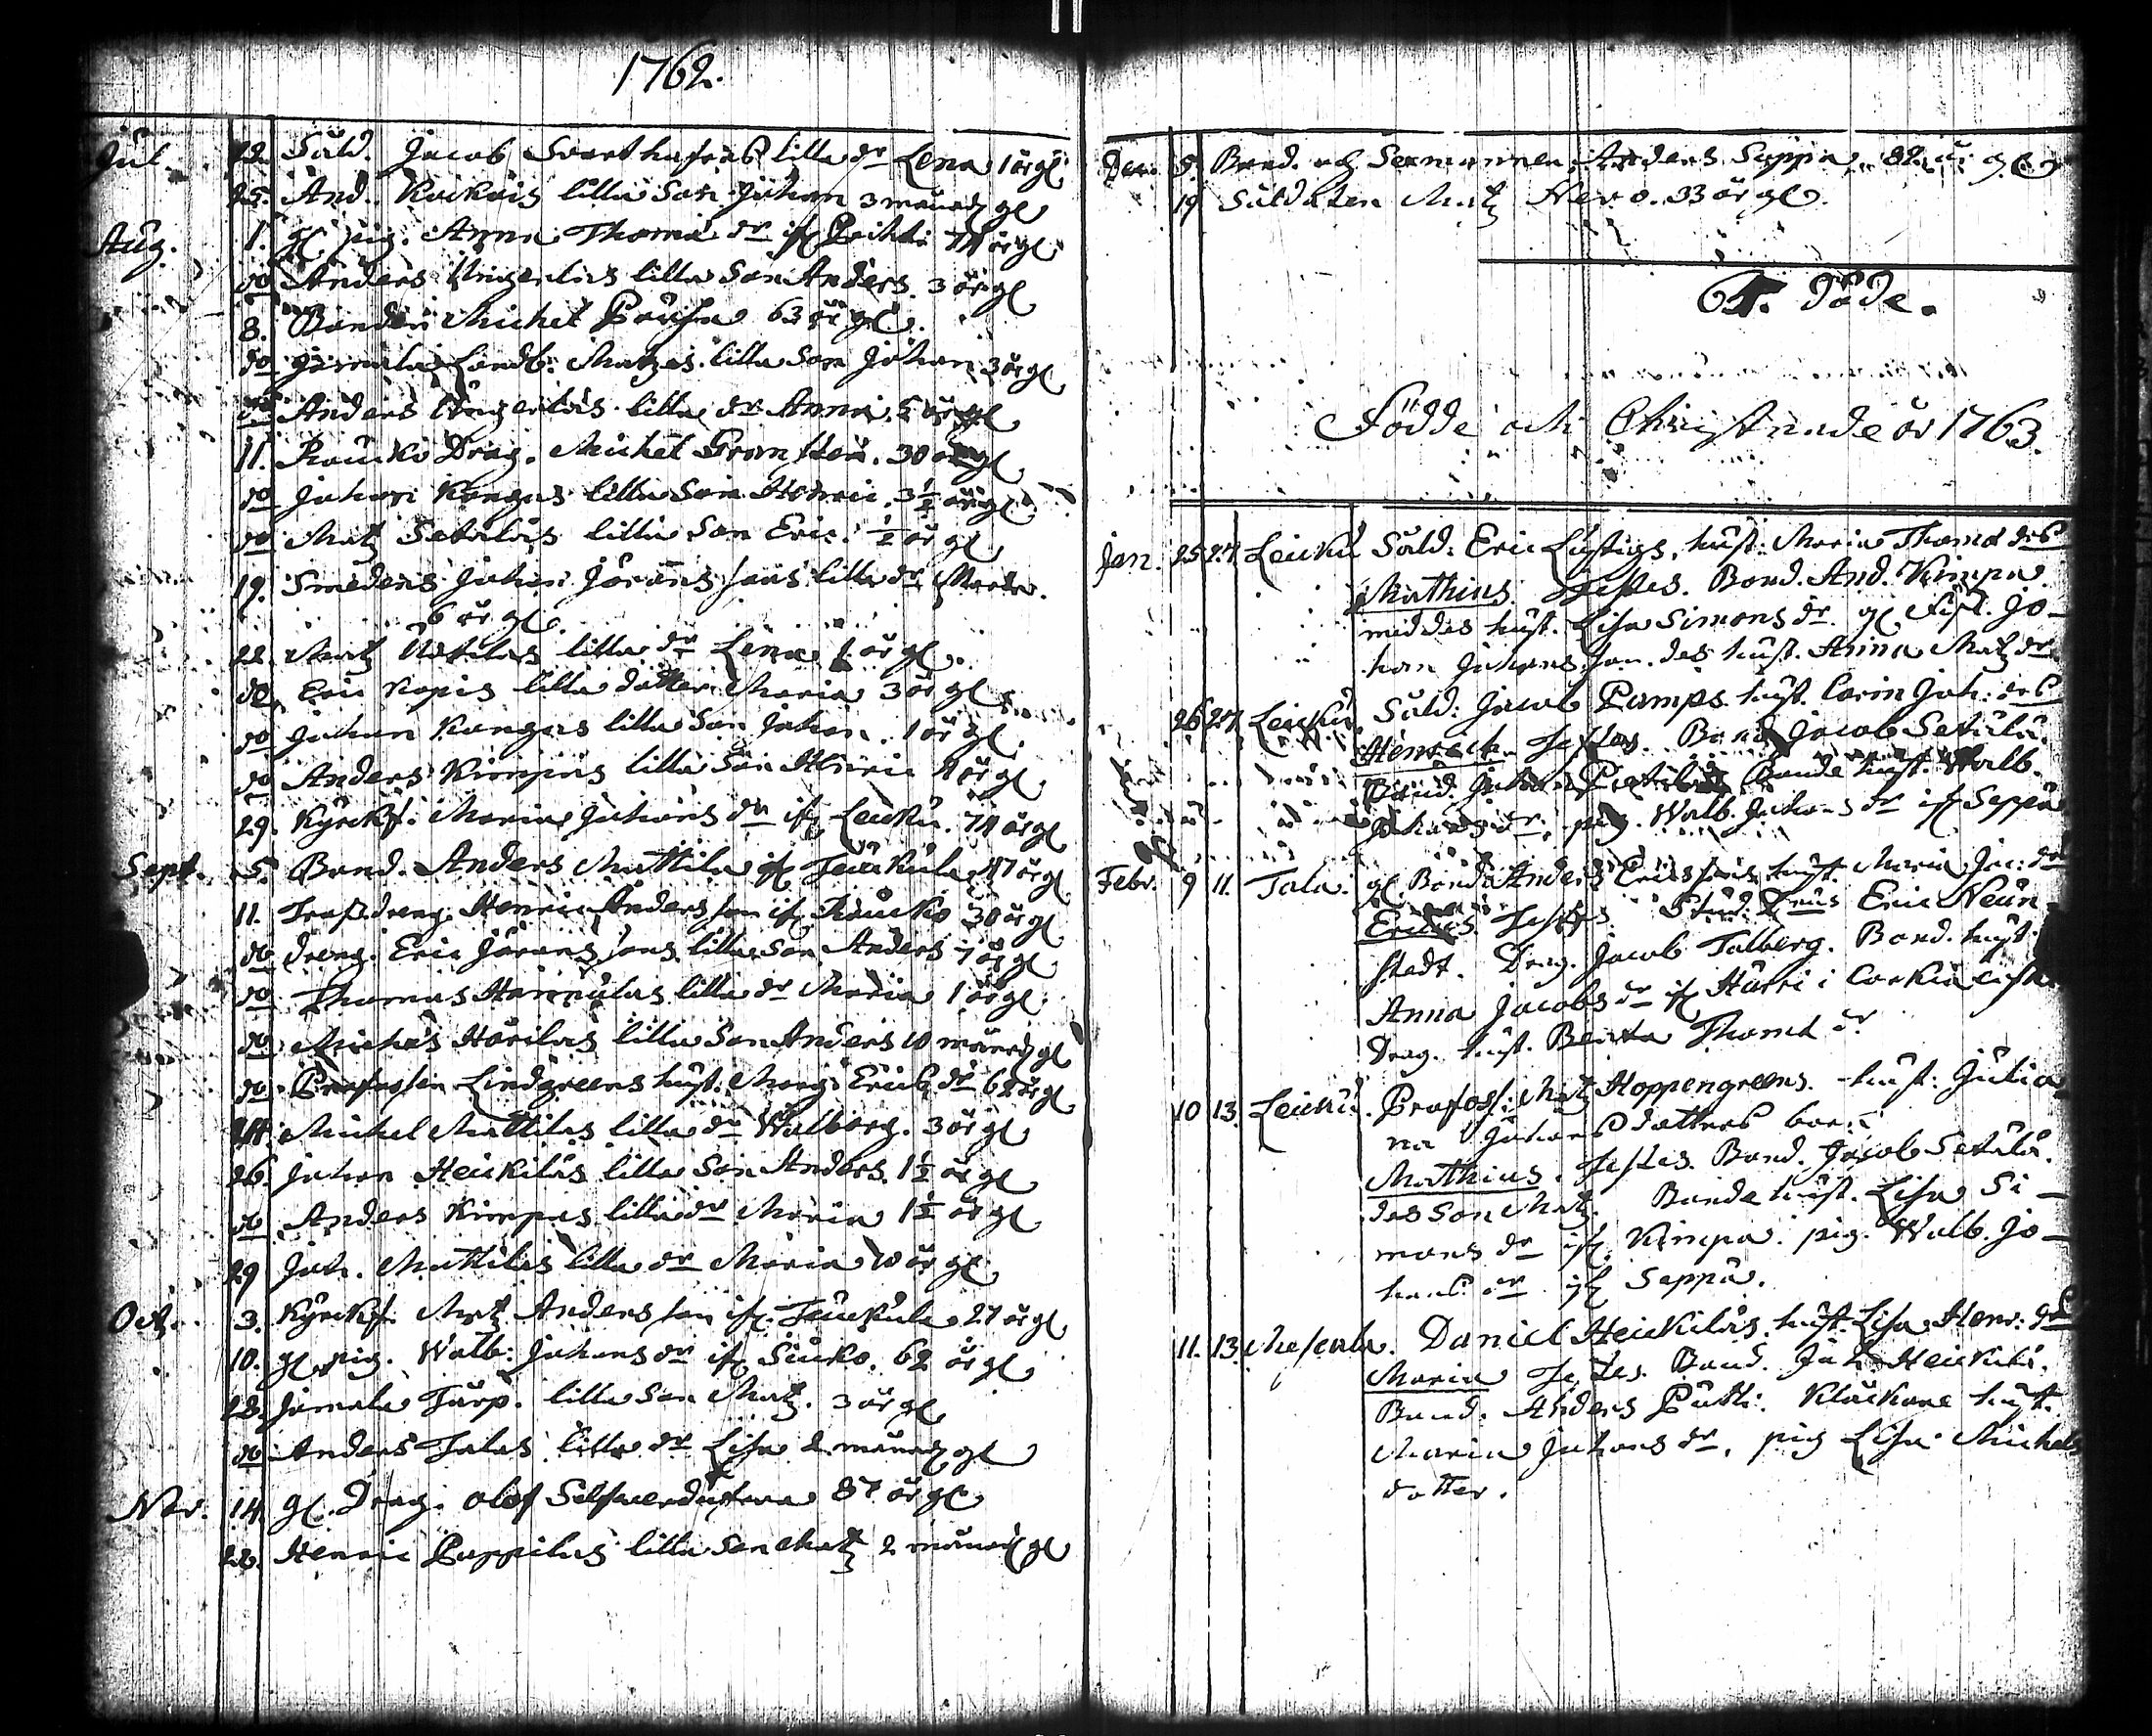 1762.
Jul. 18. Sald. Jacob Svarthafras lilla dr Lena 1 år gl
25. And. Kackois lilla Son Johan 3 månad gl
Aug. 1. gl pig. Anna Thomæ dr ifr Prihti 74 år gl
do Anders Ungerlas lilla Son Anders. 3 år gl
8. Bonden Michel Pousa 63 år gl.
do Jamala Landb. Matzes lilla Son Johan 3 år gl
do Anders Ungerlas lilla dr Anna. 5 år gl
11. Raucko Drag. Michel Gron 30 år gl
do Johan Kangas lilla Son Henric. 3 1/2 år gl
do Matz Setalas lilla Son Eric. 1/2 år gl
19. Smedens Johan Jörans sons lilla dr Maria.
6 år gl.
22. Matz Uotilas lilla dr Lena 1 år gl.
do Eric Kopis lilla dotter Maria 3 år gl
do Johan Kangas lilla Son Johan. 1 år gl.
do Anders Kimpas lilla Son Henric 4 år gl
29. Kyrckf. Maria Johans dr ifr Leuku. 74 år gl
Sept. 5. Bond. Anders Mattila ifr Jeukula 47 år gl
11. dreng. Henric Anders son ifr Raucko 30 år gl
do dreng. Eric Jörans sons lilla Son Anders 7 år gl
do Thomas Hannulas lilla dr Maria 1 år gl.
do Michels Horilas lilla Son Anders 10 månad gl
do Profossen Lindgreens hust. Marg. Erics dr 62 år gl
24. Michel Mattilas lilla dr Walborg. 3 år gl
26. Johan Heickilas lilla Son Anders. 1 1/2 år gl
do Anders Kimpas lilla dr Maria 1 1/2 år gl
29 Joh. Mattilas lilla dr Maria 10 år gl
Oct. 3. Kyrckf. Matz Anders son ifr Jeukula 27 år gl
10. gl pig. Walb. Johans dr ifr Siuko. 62 år gl
28. Jamala Torp. lilla Son Matz. 3 år gl
do Anders Talas lilla dr Lisa 2 månad gl
Nov. 14. gl. Drag. Olof 87 år gl
22. Henric Pappilas lilla Son Matz 2 månad gl
Dec. 5. Bond. och Sexmannen Anders Seppä. 82 år gl
19 Saldaten Matz Hero. 33 år gl.
Döde.
Födde och Christnade år 1763.
Jan. 25 27 Leuku Sald. Eric Lustigs, hust. Maria Thomæ drs
Mathias. Testes. Bond. And. Kimpa.
med des hust. Lisa Simons dr. gl Jo-
han Johans son. des hust. Anna Matz dr.
26 27 Leuku Sald. Jacob Pamps hust. Carin Joh. drs
Henrich. Testes. Bond. Jacob Setälä.
Bond. Johan Bonde hust. Walb.
Johans dr. pig. Walb. Johans dr ifr Seppä
Febr. 9 11. Tala. gl Bond. Anders Ericssons hust. Maria Jac: drs
Ericus. Testes. Stud. Eric Neun-
stedt. Drag. Jacob Talberg. Bond. hust.
Anna Jacobs dr ifr Harri i
Drag. hust. Beata Thomæ dr
10 13. Leuku. Profoss: Matz Hoppengreens. hust. Julia
na Johans dotters barn
Mathias. Testes. Bond. Jacob Setälä.
des Son Matz. Bonde hust. Lisa Si-
mons dr ifr Kimpa. pig. Walb. Jo-
hans dr ifr Seppä.
11. 13. Daniel Heickilas. hust. Lisa Henr: drs
Maria Testes. Bond. Joh. Heickilä.
Bond. Anders Putti. Klåckare hust.
Maria Johans dr. pig Lisa Michels
dotter.